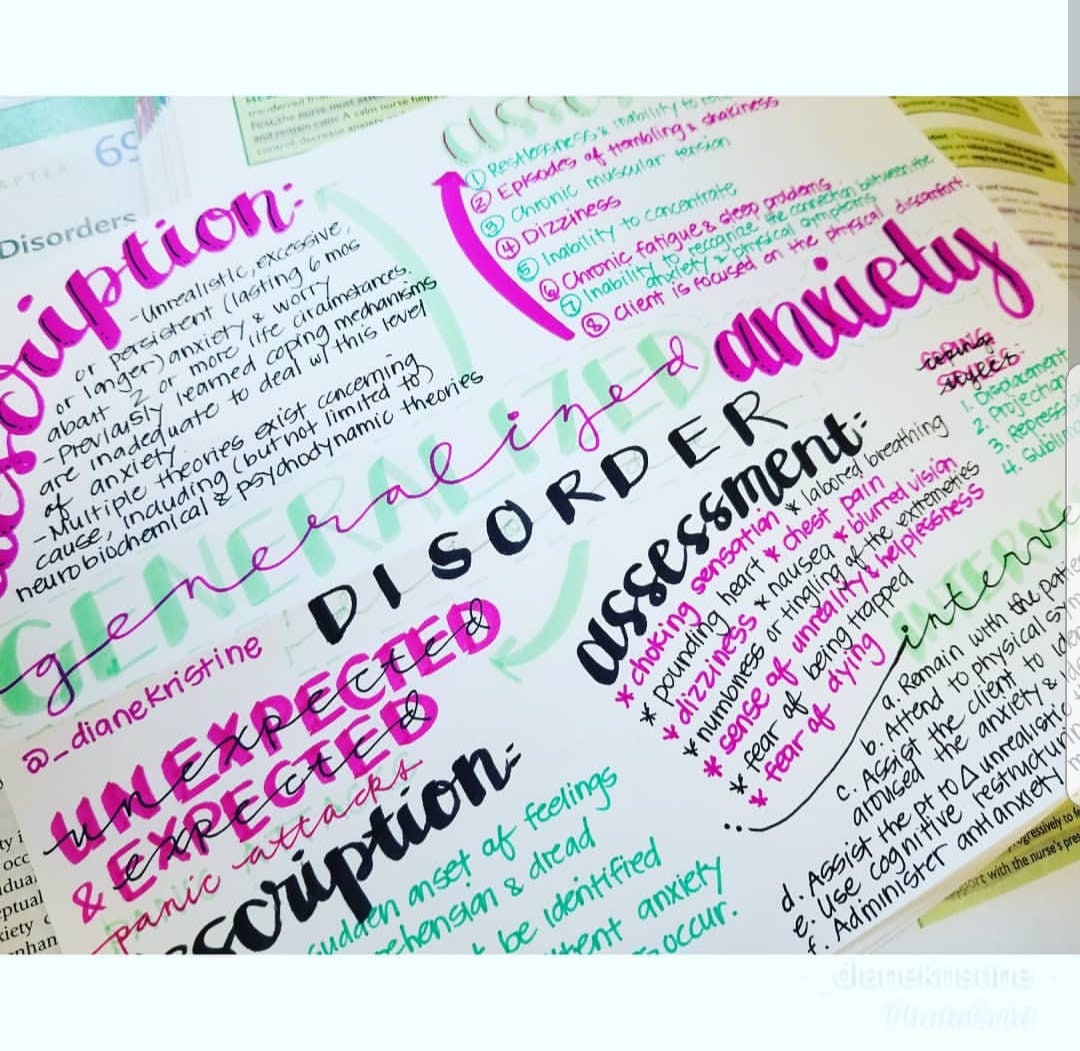 69
Disorders
cription:
-Unrealistic, excessive,
or persistent (lasting 6 mos
or longer) anxiety & worry
about 2 or more life circumstances.
-Previously learned coping mechanisms
are inadequate to deal w/ this level
of anxiety.
-Multiple theories exist concerning
cause, including (but not limited to)
neurobiochemical & psychodynamic theories
asses
① Restlessness & inability to
② Episodes of trembling & shakiness
③ Chronic muscular tension
④ Dizziness
⑤ Inability to concentrate
⑥ Chronic fatigue & sleep problems
⑦ Inability to recognize the connection between the
anxiety & physical symptoms
⑧ Client is focused on the physical discomfort.
GENERALIZED
generalized anxiety
DISORDER
coping
styles:
1. Displacement
2. Projection
3. Repressi
4. Sublim
assessment:
* choking sensation * labored breathing
* pounding heart * chest pain
* dizziness * nausea * blurred vision
* numbness or tingling of the extremeties
* sense of unreality & helplessness
* fear of being trapped
* fear of dying
@_dianekristine
UNEXPECTED
unexpected
& EXPECTED
expected
panic attacks
scription:
sudden onset of feelings
ehension & dread
t be identified
tent anxiety
occur.
INTERVE
interv
a. Remain with the patie
b. Attend to physical sym
c. Assist the client to iden
aroused the anxiety & ide
d. Assist the pt to Δ unrealistic
e. Use cognitive restructur
f. Administer antianxiety
port with the nurse's pre
_dianekristine